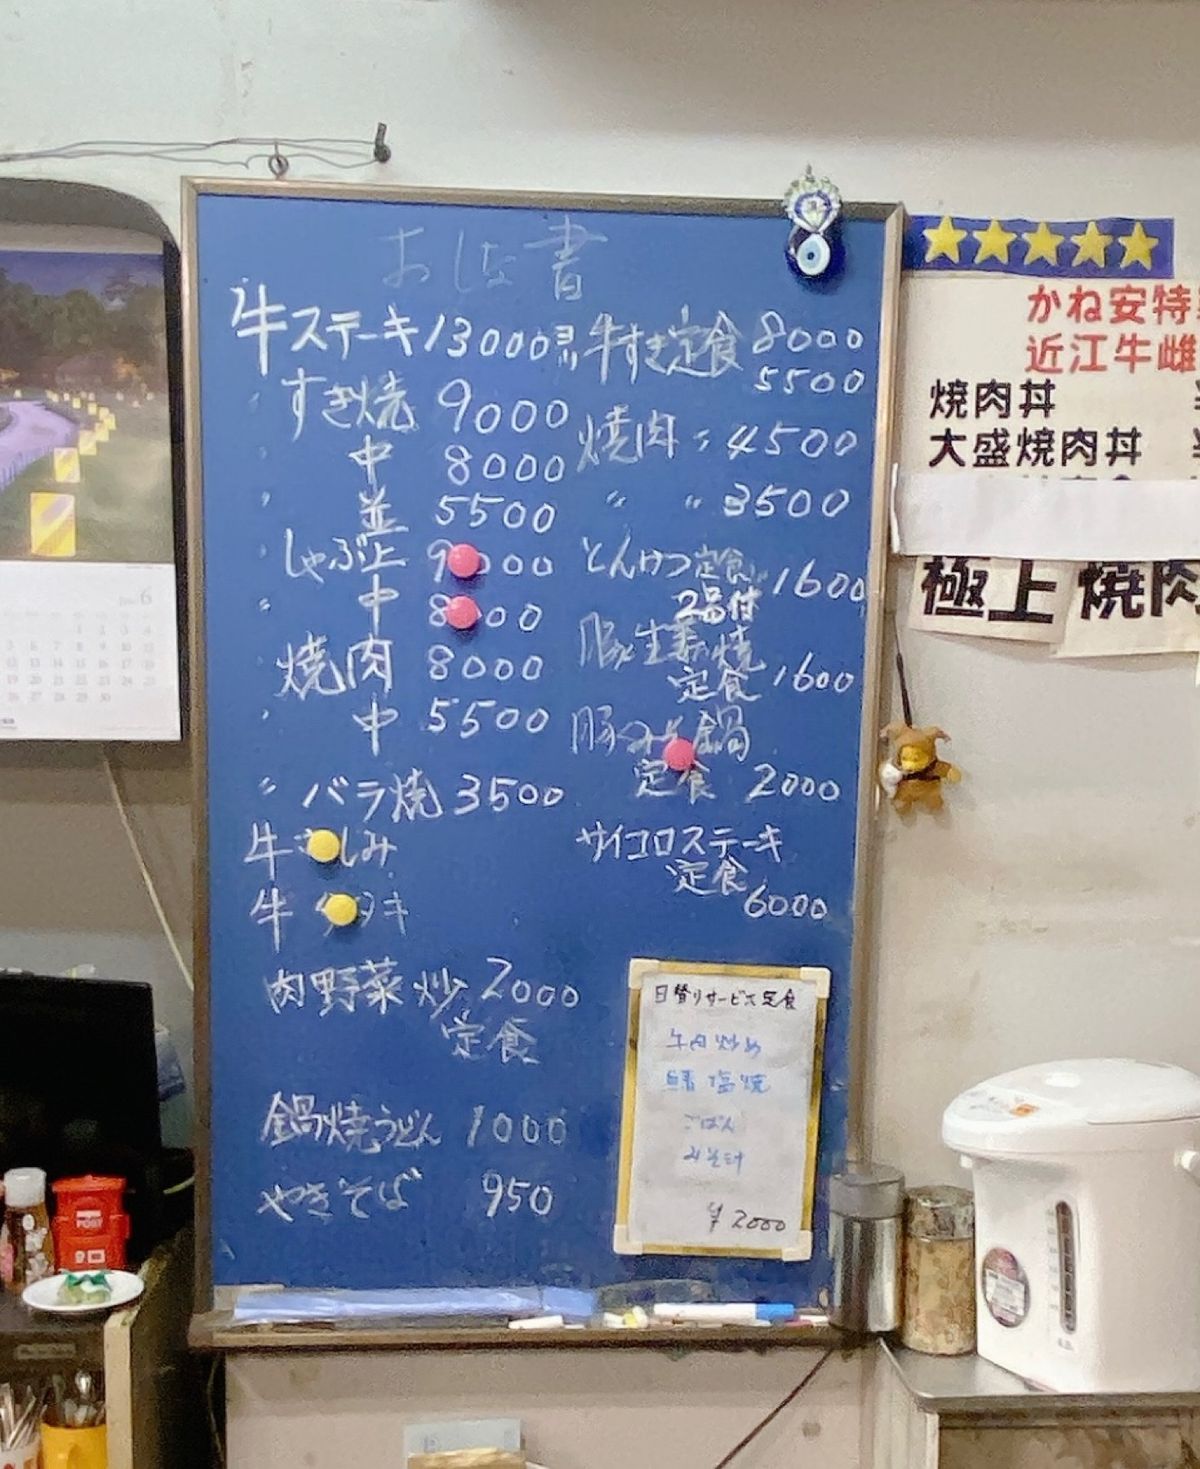 おしな書
牛ステーキ 13000ヨリ
〃 すき焼 9000
中 8000
〃 並 5500
〃 しゃぶ上 9000
〃 中 8000
〃 焼肉 8000
〃 中 5500
〃 バラ焼 3500
牛さしみ
牛タタキ
肉野菜炒 2000
定食
鍋焼うどん 1000
やきそば 950
牛すき定食 8000
5500
焼肉 〃 4500
〃 〃 3500
とんかつ定食 1600
2品付
豚生姜焼
定食 1600
豚 鍋
定食 2000
サイコロステーキ
定食
6000
日替りサービス定食
牛肉炒め
鯖塩焼
ごはん
みそ汁
¥2000
かね安特
近江牛雌
焼肉丼
大盛焼肉丼
極上焼肉
6
POST